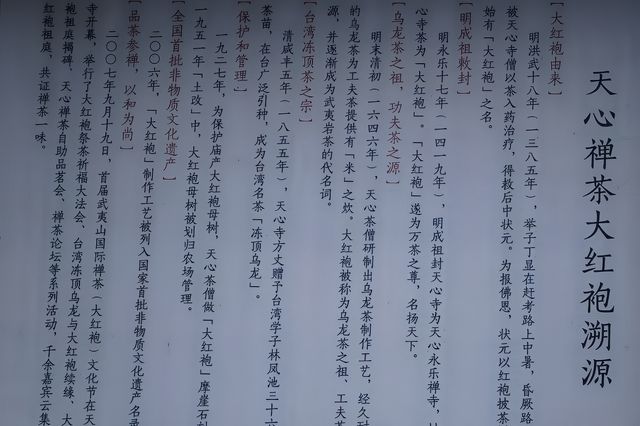 天心禅茶大红袍溯源
【大红袍由来】
明洪武十八年（一三八五年），举子丁显在赶考路上中暑，昏厥路
被天心寺僧以茶入药治疗，得救后中状元。为报佛恩，状元以红袍披茶
始有「大红袍」之名。
【明成祖敕封】
明永乐十七年（一四一九年），明成祖封天心寺为天心永乐禅寺，
心寺茶为「大红袍」。「大红袍」遂为万茶之尊，名扬天下。
【乌龙茶之祖，功夫茶之源】
明末清初（一六四六年），天心茶僧研制出乌龙茶制作工艺，经久
的乌龙茶为工夫茶提供有「米」之炊。大红袍被称为乌龙茶之祖、工夫茶
源，并逐渐成为武夷岩茶的代名词。
【台湾冻顶茶之宗】
清咸丰五年（一八五五年），天心寺方丈赠予台湾学子林凤池三十六
茶苗，在台广泛引种，成为台湾名茶「冻顶乌龙」。
【保护和管理】
一九二七年，为保护庙产大红袍母树，天心茶僧做「大红袍」摩崖石
一九五一年「土改」中，大红袍母树被划归农场管理。
【全国首批非物质文化遗产】
二〇〇六年，「大红袍」制作工艺被列入国家首批非物质文化遗产名录
【品茶参禅，以和为尚】
二〇〇七年九月十九日，首届武夷山国际禅茶（大红袍）文化节在天
寺开幕，举行了大红袍祭茶祈福大法会、台湾冻顶乌龙与大红袍续缘、大
袍祖庭揭碑、天心禅茶自助品茗会、禅茶论坛等系列活动，千余嘉宾云集
红袍祖庭，共证禅茶一味。